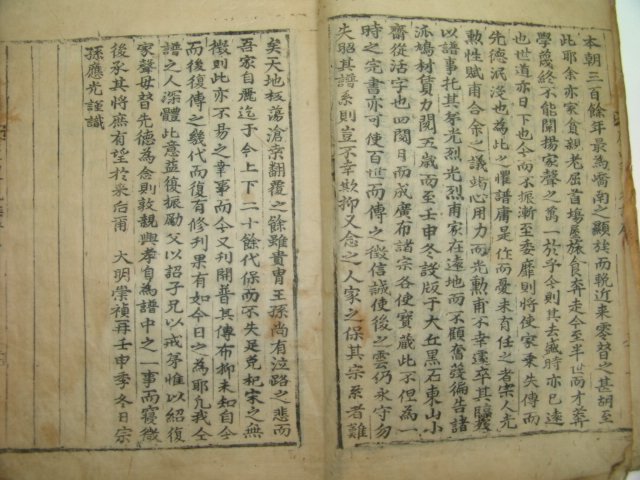 本朝三百餘年最爲嶠南之顯族而輓近來零替之甚胡至
此耶余亦家貧親老屈首場屋旅食奔走今至半世而才莽
學蔑終不能闡揚家聲之萬一於乎今則其去歲時亦已遠
也世道亦日下也今而不振漸至委靡則將使家乘失傳而
先德泯沒也爲此之懼譜庸是作而憂未有任之者宗人光
勳性賦甫合余之議竭心用力而光勳甫不幸遽卒其臨歿
以譜事托其季光烈光烈甫家在遠地而不顧奮發徧告諸
派鳩材賃力閱五歲而至壬申冬設版于大丘黑石東山小
齋從活字也四閱月而成廣布諸宗各使寶藏此不但爲一
時之完書亦可使百世而傳之徵信誠使後之雲仍永守勿
失昭其譜系則豈不幸歟抑又念之人家之保其宗系者難
矣天地板蕩滄桑翻覆之餘雖貴冑王孫尚有泣路之悲而
吾家自麗迄于今上下二十餘代保而不失是免杞宋之無
徵則此亦不易之幸事而今又刊閱普其傳布抑未知自今
而後復傳之幾代而復有修刊果有如今日之爲耶凡我仝
譜之人深體此意益復振勵父以詔子兄以戒弟惟以紹復
家聲毋替先德爲念則敦親興孝自爲譜中之一事而寢微
後承其將庶有望於來后爾 大明崇禎再壬申季冬日宗
孫應光謹識